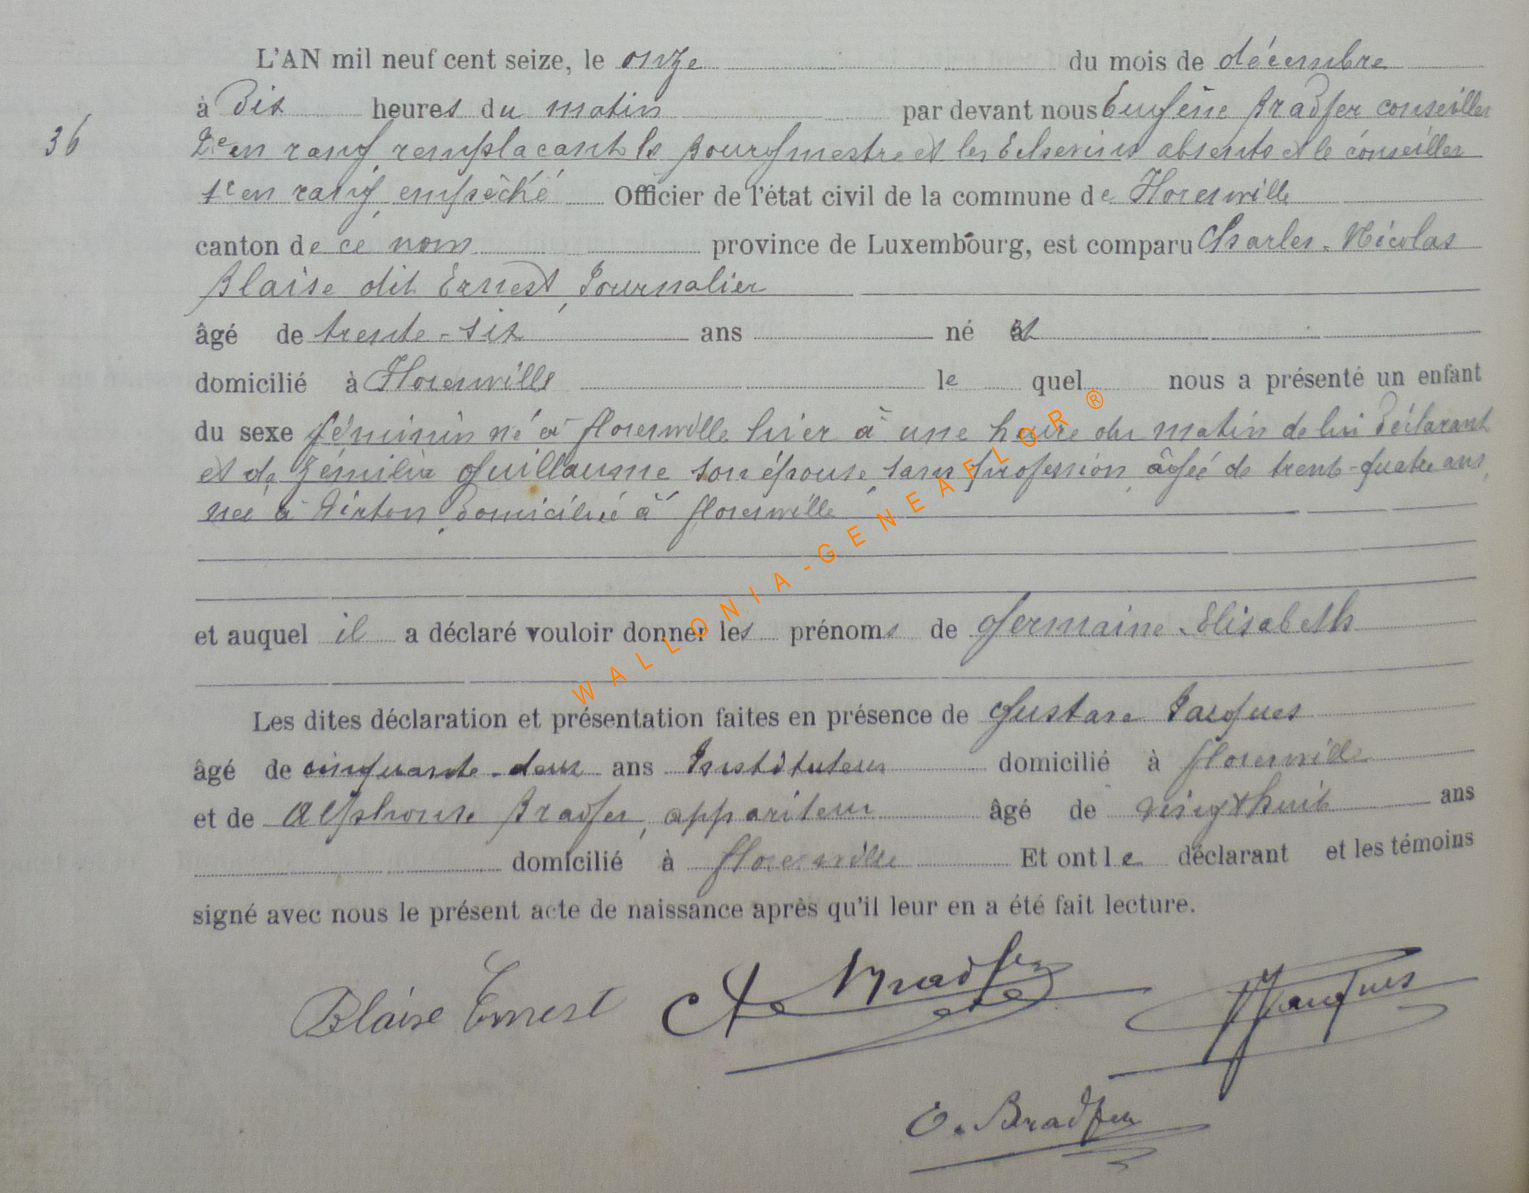 L'AN mil neuf cent seize, le onze du mois de décembre
à Dix heures du matin par devant nous Eugène Bradfer conseiller
36
2e en rang remplaçant le Bourgmestre et les Echevins absents et le conseiller
1er en rang, empêché Officier de l'état civil de la commune de Florenville
canton de ce nom province de Luxembourg, est comparu Charles-Nicolas
Blaise dit Ernest, Journalier
âgé de trente-six ans né et
domicilié à Florenville lequel nous a présenté un enfant
du sexe féminin né à Florenville hier à une heure du matin de lui Déclarant
et de Zémilie Guillaume son épouse, sans profession, âgée de trente-quatre ans,
née à Virton, Domiciliée à Florenville
et auquel il a déclaré vouloir donner les prénoms de Germaine-Elisabeth
Les dites déclaration et présentation faites en présence de Gustave Jacques
âgé de cinquante-deux ans Instituteur domicilié à Florenville
et de Alphonse Bradfer, appariteur âgé de vingt huit ans
domicilié à Florenville Et ont le déclarant et les témoins
signé avec nous le présent acte de naissance après qu'il leur en a été fait lecture.
Blaise Ernest A Bradfer Jacques
E. Bradfer
WALLONIA-GENEAFLOR ®